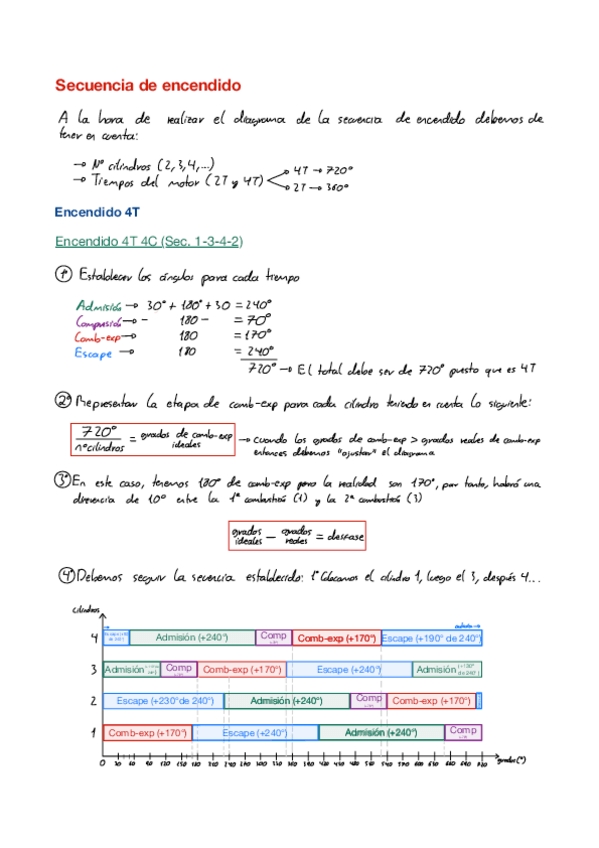 Secuencia de encendido
A la hora de realizar el diagrama de la secuencia de encendido debemos de
tener en cuenta:
→ Nº cilindros (2,3,4,...)
→ Tiempos del motor (2T y 4T)
→ 4T → 720°
→ 2T → 360°
Encendido 4T
Encendido 4T 4C (Sec. 1-3-4-2)
1º Establecer los ángulos para cada tiempo
Admisión → 30° + 180° + 30 = 240°
Compresión → - 180 - = 70°
Comb-exp → 180 = 170°
Escape → 180 = 240°
720° → El total debe ser de 720° puesto que es 4T
2º Representar la etapa de comb-exp para cada cilindro teniendo en cuenta lo siguiente:
720° / nº cilindros = grados de comb-exp ideales → cuando los grados de comb-exp > grados reales de comb-exp
entonces debemos "ajustar" el diagrama
3º En este caso, tenemos 180° de comb-exp pero la realidad son 170°, por tanto, habrá una
diferencia de 10° entre la 1ª combustión (1) y la 2ª combustión (3)
grados ideales - grados reales = desfase
4º Debemos seguir la secuencia establecida: 1º Colocamos el cilindro 1, luego el 3, después 4...
cilindros
4 Admisión (+240°) Comp Comb-exp (+170°) Escape (+190° de 240°)
3 Admisión Comp Comb-exp (+170°) Escape (+240°) Admisión
2 Escape (+230°de 240°) Admisión (+240°) Comp Comb-exp (+170°)
1 Comb-exp (+170°) Escape (+240°) Admisión (+240°) Comp
grados (°)